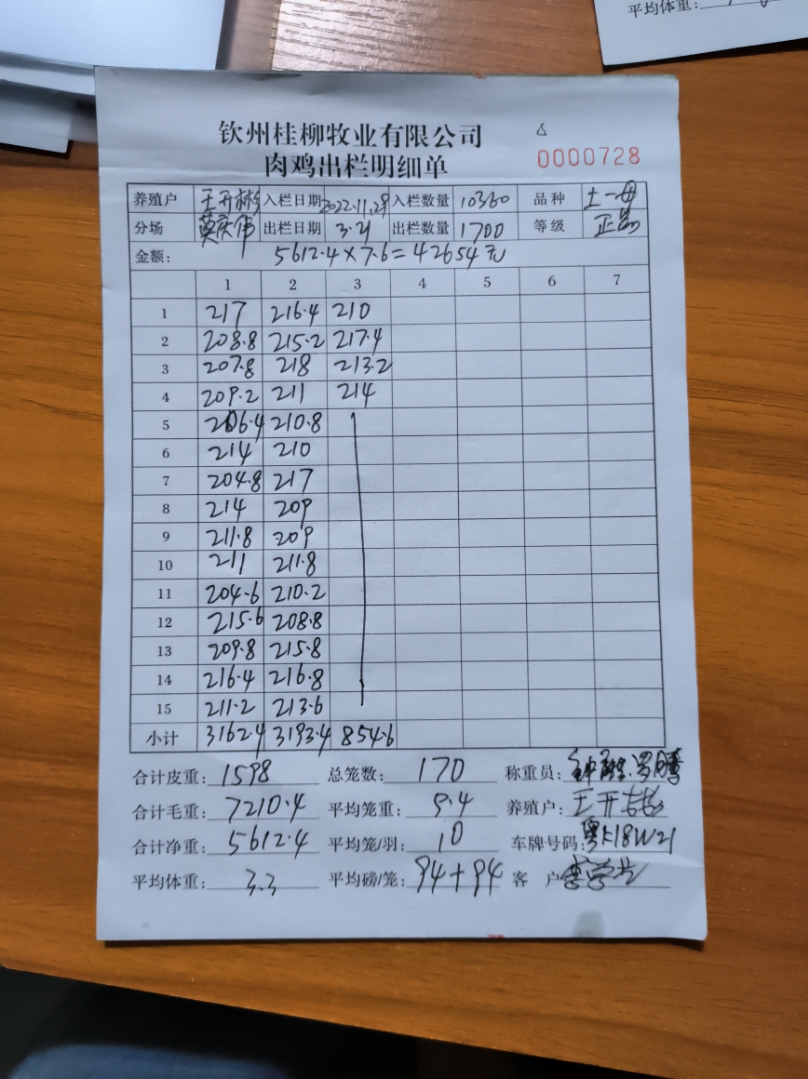 平均体重:
钦州桂柳牧业有限公司
肉鸡出栏明细单
0000728
养殖户 王开彬 入栏日期 2022.11.29 入栏数量 10360 品种 土一母
分场 莫庆伟 出栏日期 3.21 出栏数量 1700 等级 正品
金额: 5612.4×7.6=42654元
1 2 3 4 5 6 7
1 217 216.4 210
2 208.8 215.2 217.4
3 207.8 218 213.2
4 209.2 211 214
5 206.4 210.8
6 214 210
7 204.8 217
8 214 209
9 211.8 209
10 211 211.8
11 204.6 210.2
12 215.6 208.8
13 209.8 215.8
14 216.4 216.8
15 211.2 213.6
小计 3162.4 3193.4 854.6
合计皮重: 1598 总笼数: 170 称重员:
合计毛重: 7210.4 平均笼重: 9.4 养殖户: 王开彬
合计净重: 5612.4 平均笼/羽: 10 车牌号码:
平均体重: 3.3 平均磅/笼: 94+94 客 户